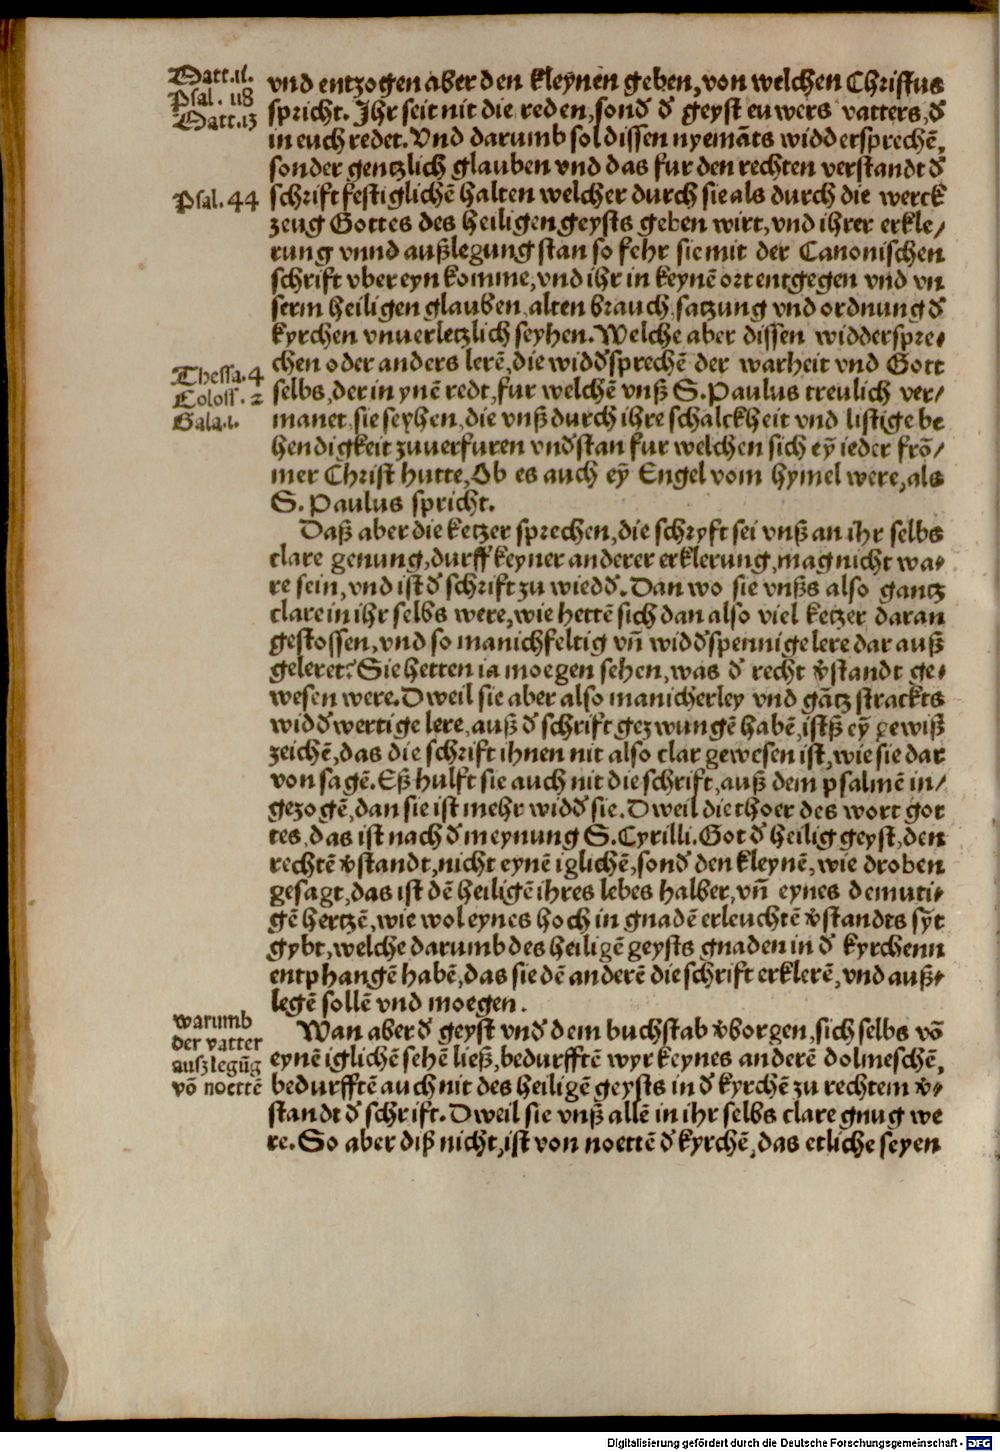 Matt.11.
Psal. 118
Matt.13
vnd entzogen aber den kleynen geben, von welchen Christus
spricht. Ihr seit nit die reden, sond̕ d̕ geyst euwers vatters, d̕
in euch redet. Vnd darumb sol dissen nyemāts widdersprechē,
sonder gentzlich glauben vnd das fur den rechten verstandt d̕
Psal. 44
schrift festiglichē halten welcher durch sie als durch die werck
zeug Gottes des heiligen geysts geben wirt, vnd ihrer erkle/
rung vnnd außlegung stan so fehr sie mit der Canonischen
schrift vbereyn komme, vnd ihr in keynē ort entgegen vnd vn
serm heiligen glauben, alten brauch, satzung vnd ordnung d̕
kyrchen vnuerletzlich seyhen. Welche aber dissen widderspre⸗
chen oder anders lerē, die widd̕sprechē der warheit vnd Gott
Thessa. 4
Coloss. 2
Gala. 1.
selbs, der in ynē redt, fur welchē vnß S. Paulus treulich ver/
manet, sie seyhen, die vnß durch ihre schalckheit vnd listige be
hendigkeit zuuerfuren vnd̕stan fur welchen sich eȳ ieder frō/
mer Christ hutte, Ob es auch eȳ Engel vom hymel were, als
S. Paulus spricht.
Daß aber die ketzer sprechen, die schryft sei vnß an ihr selbs
clare genung, durff keyner anderer erklerung, mag nicht wa⸗
re sein, vnd ist d̕ schrift zu wiedd̕. Dan wo sie vnßs also gantz
clare in ihr selbs were, wie hettē sich dan also viel ketzer daran
gestossen, vnd so manichfeltig vn̄ widd̕spennige lere dar auß
geleret? Sie hetten ia moegen sehen, was d̕ recht v̕standt ge⸗
wesen were. Dweil sie aber also manicherley vnd gātz strackts
widd̕wertige lere, auß d̕ schrift gezwungē habē, istß eȳ gewiß
zeichē, das die schrift ihnen nit also clar gewesen ist, wie sie dar
von sagē. Eß hulft sie auch nit die schrift, auß dem psalmē in/
gezogē, dan sie ist mehr widd̕ sie. Dweil die thoer des wort got
tes, das ist nach d̕ meynung S. Cyrilli. Got d̕ heilig geyst, den
rechtē v̕standt, nicht eynē iglichē, sond̕ den kleynē, wie droben
gesagt, das ist dē heiligē ihres lebes halber, vn̄ eynes demuti⸗
gē hertzē, wie wol eynes hoch in gnadē erleuchtē v̕standts sȳt
gybt, welche darumb des heiligē geysts gnaden in d̕ kyrchenn
entphangē habē, das sie dē anderē die schrift erklerē, vnd auß⸗
legē sollē vnd moegen.
warumb
der vatter
außlegūg
vō noettē
Wan aber d̕ geyst vnd̕ dem buchstab v̕borgen, sich selbs vō
eynē iglichē sehē ließ, bedurfftē wyr keynes anderē dolmeschē,
bedurfftē auch nit des heiligē geysts in d̕ kyrchē zu rechtem v̕⸗
standt d̕ schrift. Dweil sie vnß allē in ihr selbs clare gnug we
re. So aber diß nicht, ist von noettē d̕ kyrchē, das etliche seyen
Digitalisierung gefördert durch die Deutsche Forschungsgemeinschaft - DFG